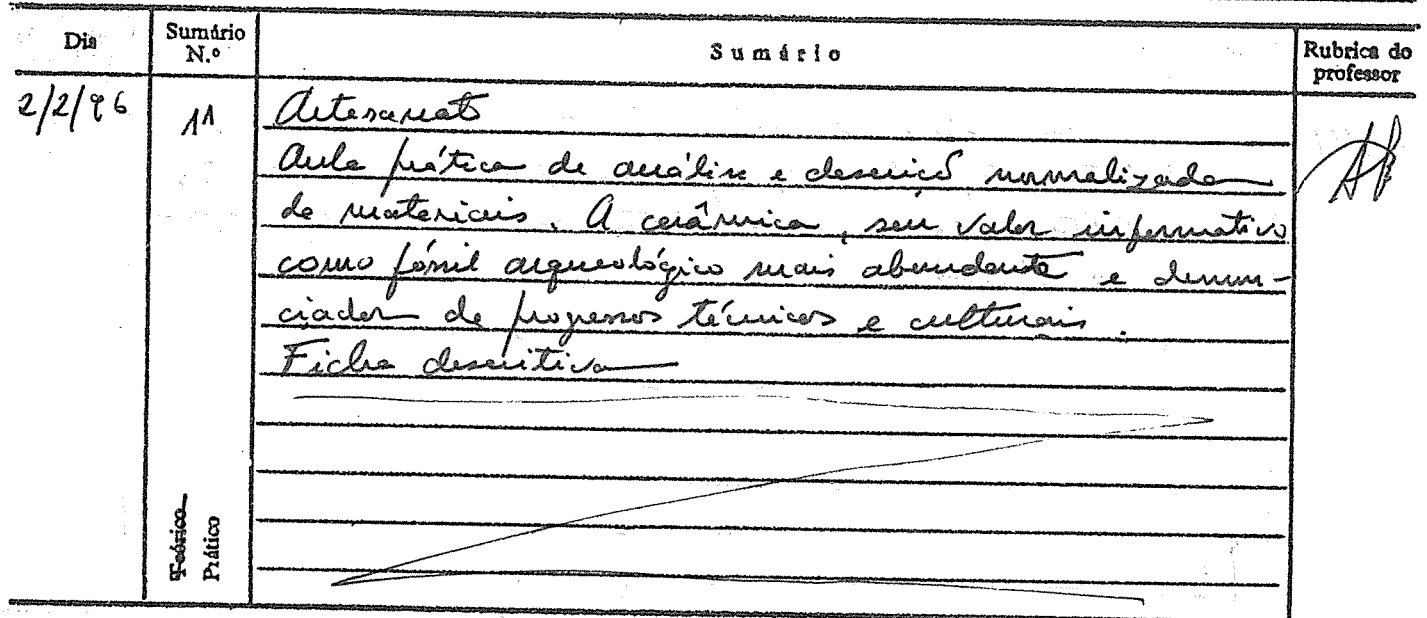 Dia Sumário N.º Sumário Rubrica do professor
2/2/96 11 Artesanato
Aula prática de análise e descrição normalizada
de materiais. A cerâmica, seu valor informativo
como fóssil arqueológico mais abundante e denun-
ciador de progressos técnicos e culturais.
Ficha descritiva
Teórico
Prático